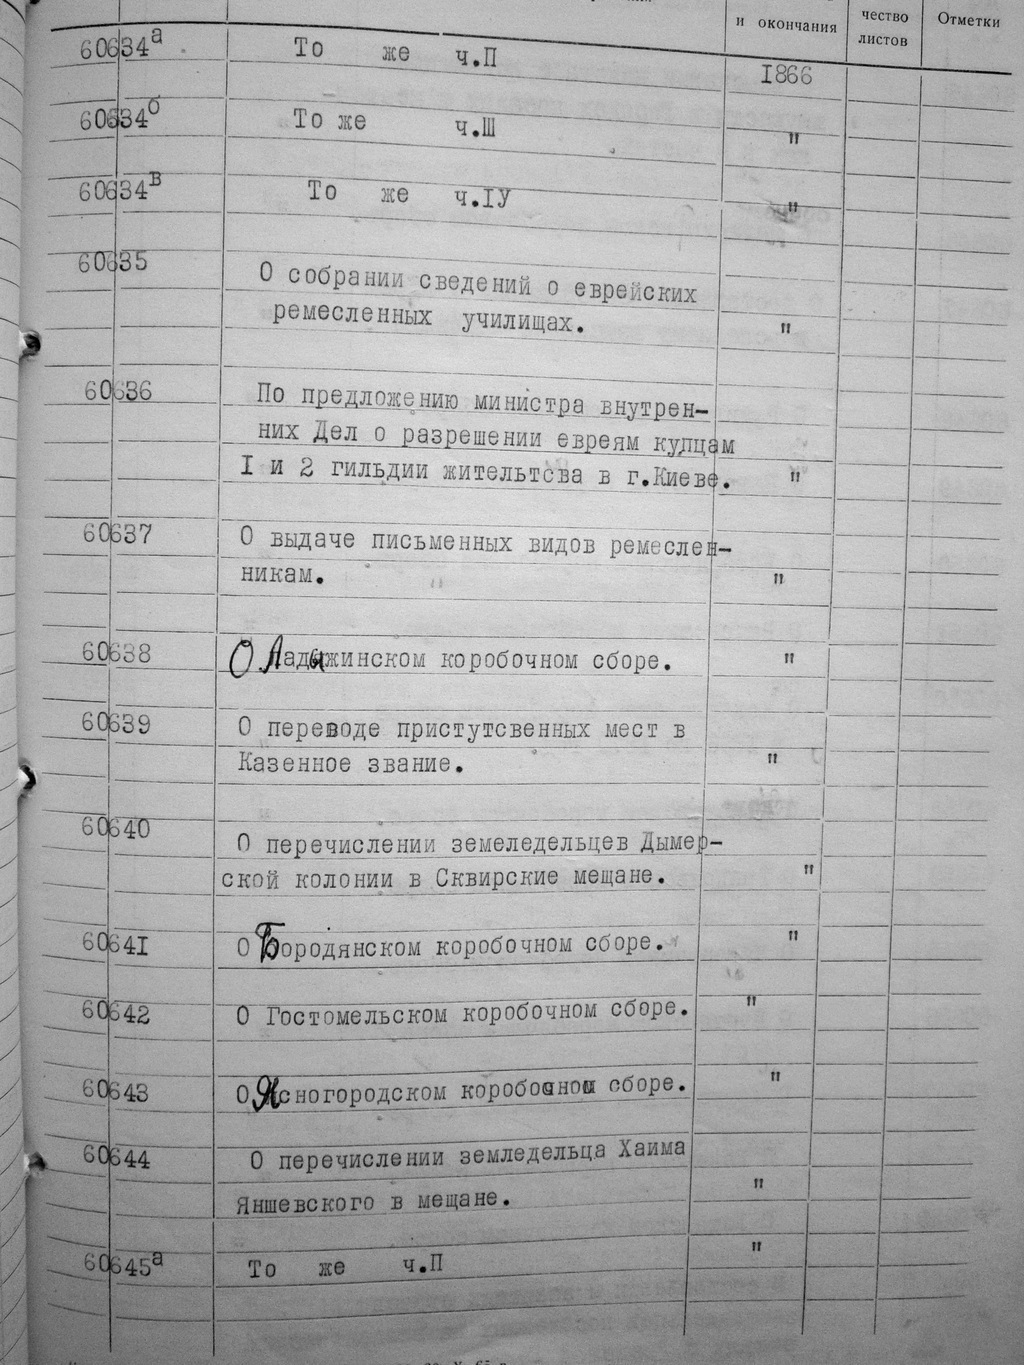 и окончания
чество
листов
Отметки
60634а То же ч.П
1866
60634б То же ч.Ш "
60634в То же ч.ІУ "
60635 О собрании сведений о еврейских
ремесленных училищах. "
60636 По предложению министра внутрен-
них Дел о разрешении евреям купцам
I и 2 гильдии жительтсва в г.Киеве. "
60637 О выдаче письменных видов ремеслен-
никам. "
60638 О Ладыжинском коробочном сборе. "
60639 О переводе пристутсвенных мест в
Казенное звание. "
60640 О перечислении земеледельцев Дымер-
ской колонии в Сквирские мещане. "
60641 О Бородянском коробочном сборе. "
60642 О Гостомельском коробочном сборе. "
60643 О Ясногородском коробочном сборе. "
60644 О перечислении земледельца Хаима
Яншевского в мещане. "
60645а То же ч.П "